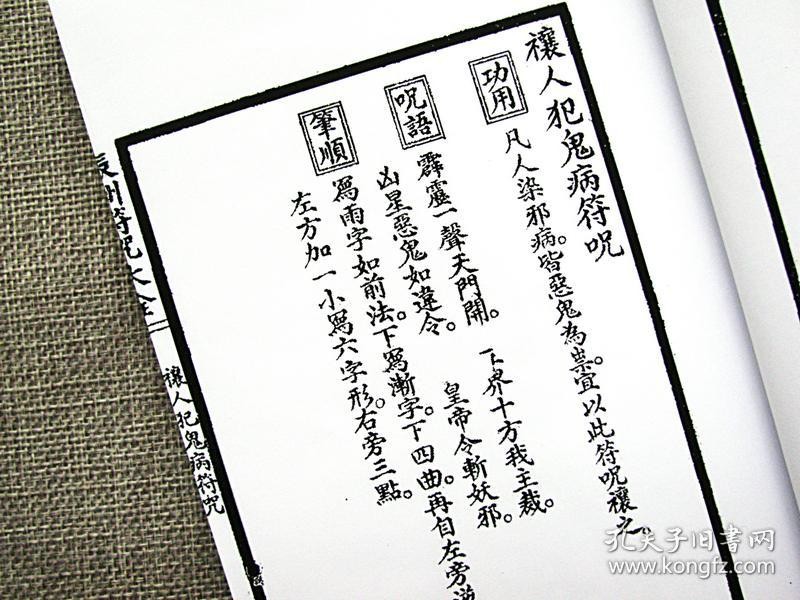 禳人犯鬼病符呪
功用
凡人染邪病。皆惡鬼為祟。宜以此符呪禳之。
呪語
霹靂一聲天門開。 下界十方我主裁。
凶星惡鬼如違令。 皇帝令斬妖邪。
筆順
寫雨字如前法。下寫漸字。下四曲。再自左旁
左方加一小寫六字形。右旁三點。
辰州符咒大全
禳人犯鬼病符咒
孔夫子旧书网
www.kongfz.com